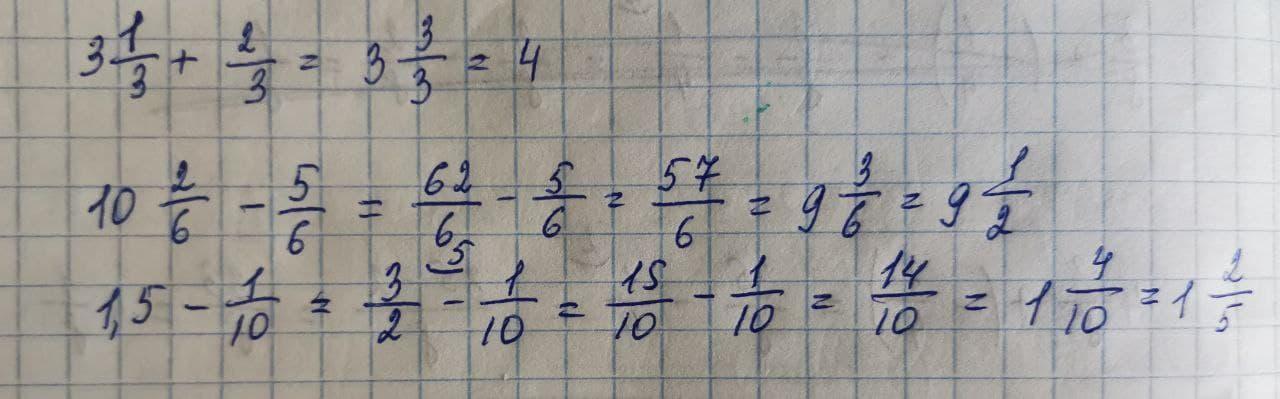 3 1/3 + 2/3 = 3 3/3 = 4
10 2/6 - 5/6 = 62/6 - 5/6 = 57/6 = 9 3/6 = 9 1/2
1,5 - 1/10 = 3/2 ⁵ - 1/10 = 15/10 - 1/10 = 14/10 = 1 4/10 = 1 2/5